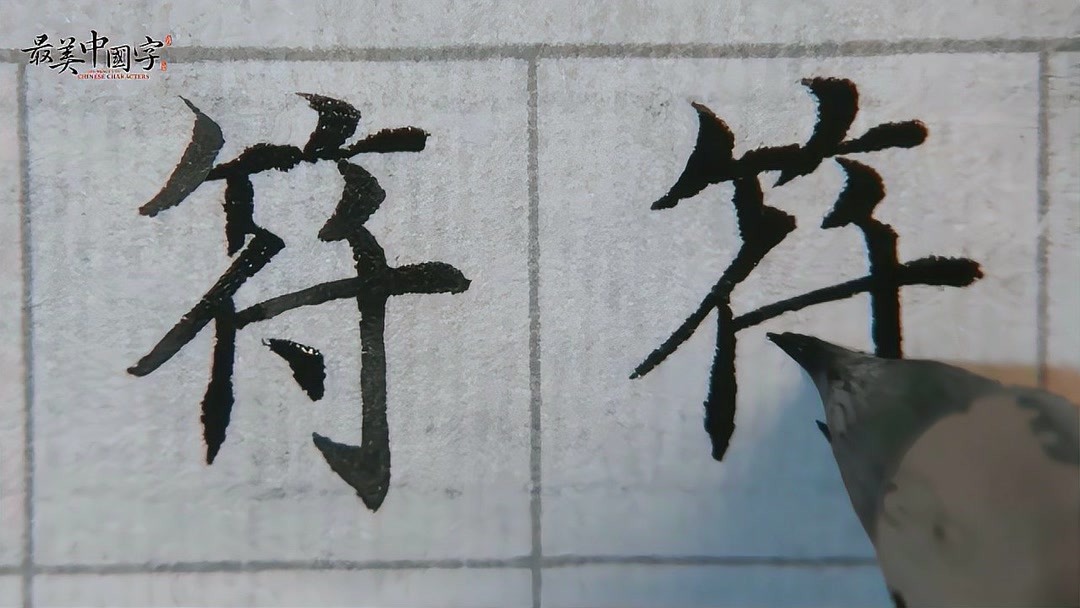 最美中國字
CHINESE CHARACTERS
符 符